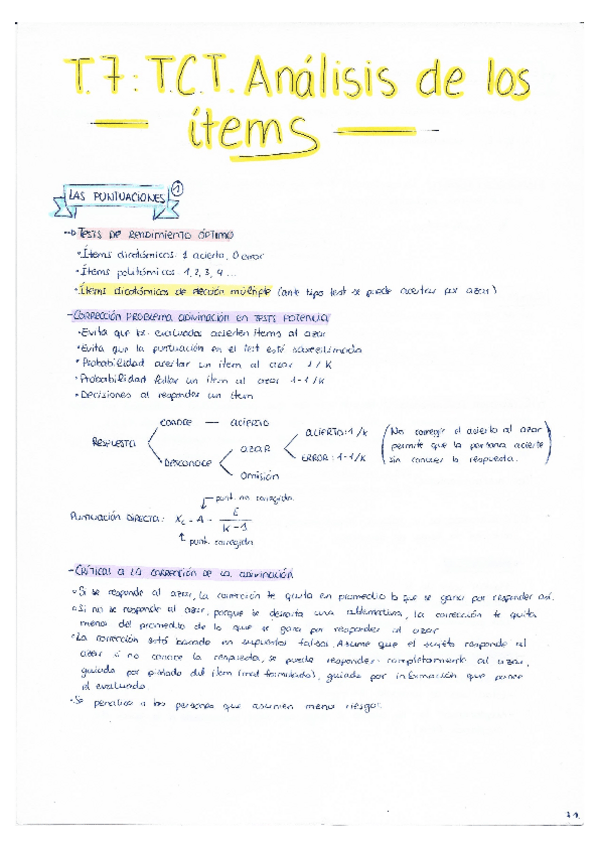 T.7: T.C.T. Análisis de los
ítems
LAS PUNTUACIONES 1
Tests de rendimiento óptimo
• Ítems dicotómicos: 1 acierto, 0 error
• Ítems politómicos: 1, 2, 3, 4 ...
• Ítems dicotómicos de elección múltiple (ante tipo test se puede acertar por azar)
- Corrección problema adivinación en tests potencia
• Evita que los evaluados acierten ítems al azar
• Evita que la puntuación en el test esté sobreestimada
• Probabilidad acertar un ítem al azar 1/K
• Probabilidad fallar un ítem al azar 1-1/K
• Decisiones al responder un ítem
CONOCE — ACIERTO
RESPUESTA
DESCONOCE
AZAR
Omisión
ACIERTO: 1/K
ERROR: 1-1/K
(No corregir el acierto al azar
permite que la persona acierte
sin conocer la respuesta.)
punt. no corregida
Puntuación directa: Xc = A - E / K-1
punt. corregida
- Críticas a la corrección de la adivinación
• Si se responde al azar, la corrección te quita en promedio lo que se gana por responder así.
• Si no se responde al azar, porque se descarta una alternativa, la corrección te quita
menos del promedio de lo que se gana por responder al azar
• La corrección está basada en supuestos falsos. Asume que el sujeto responde al
azar si no conoce la respuesta, se puede responder: completamente al azar,
guiado por el enunciado del ítem (mal formulado), guiado por información que posee
el evaluado
• Se penaliza a las personas que asumen menos riesgos.